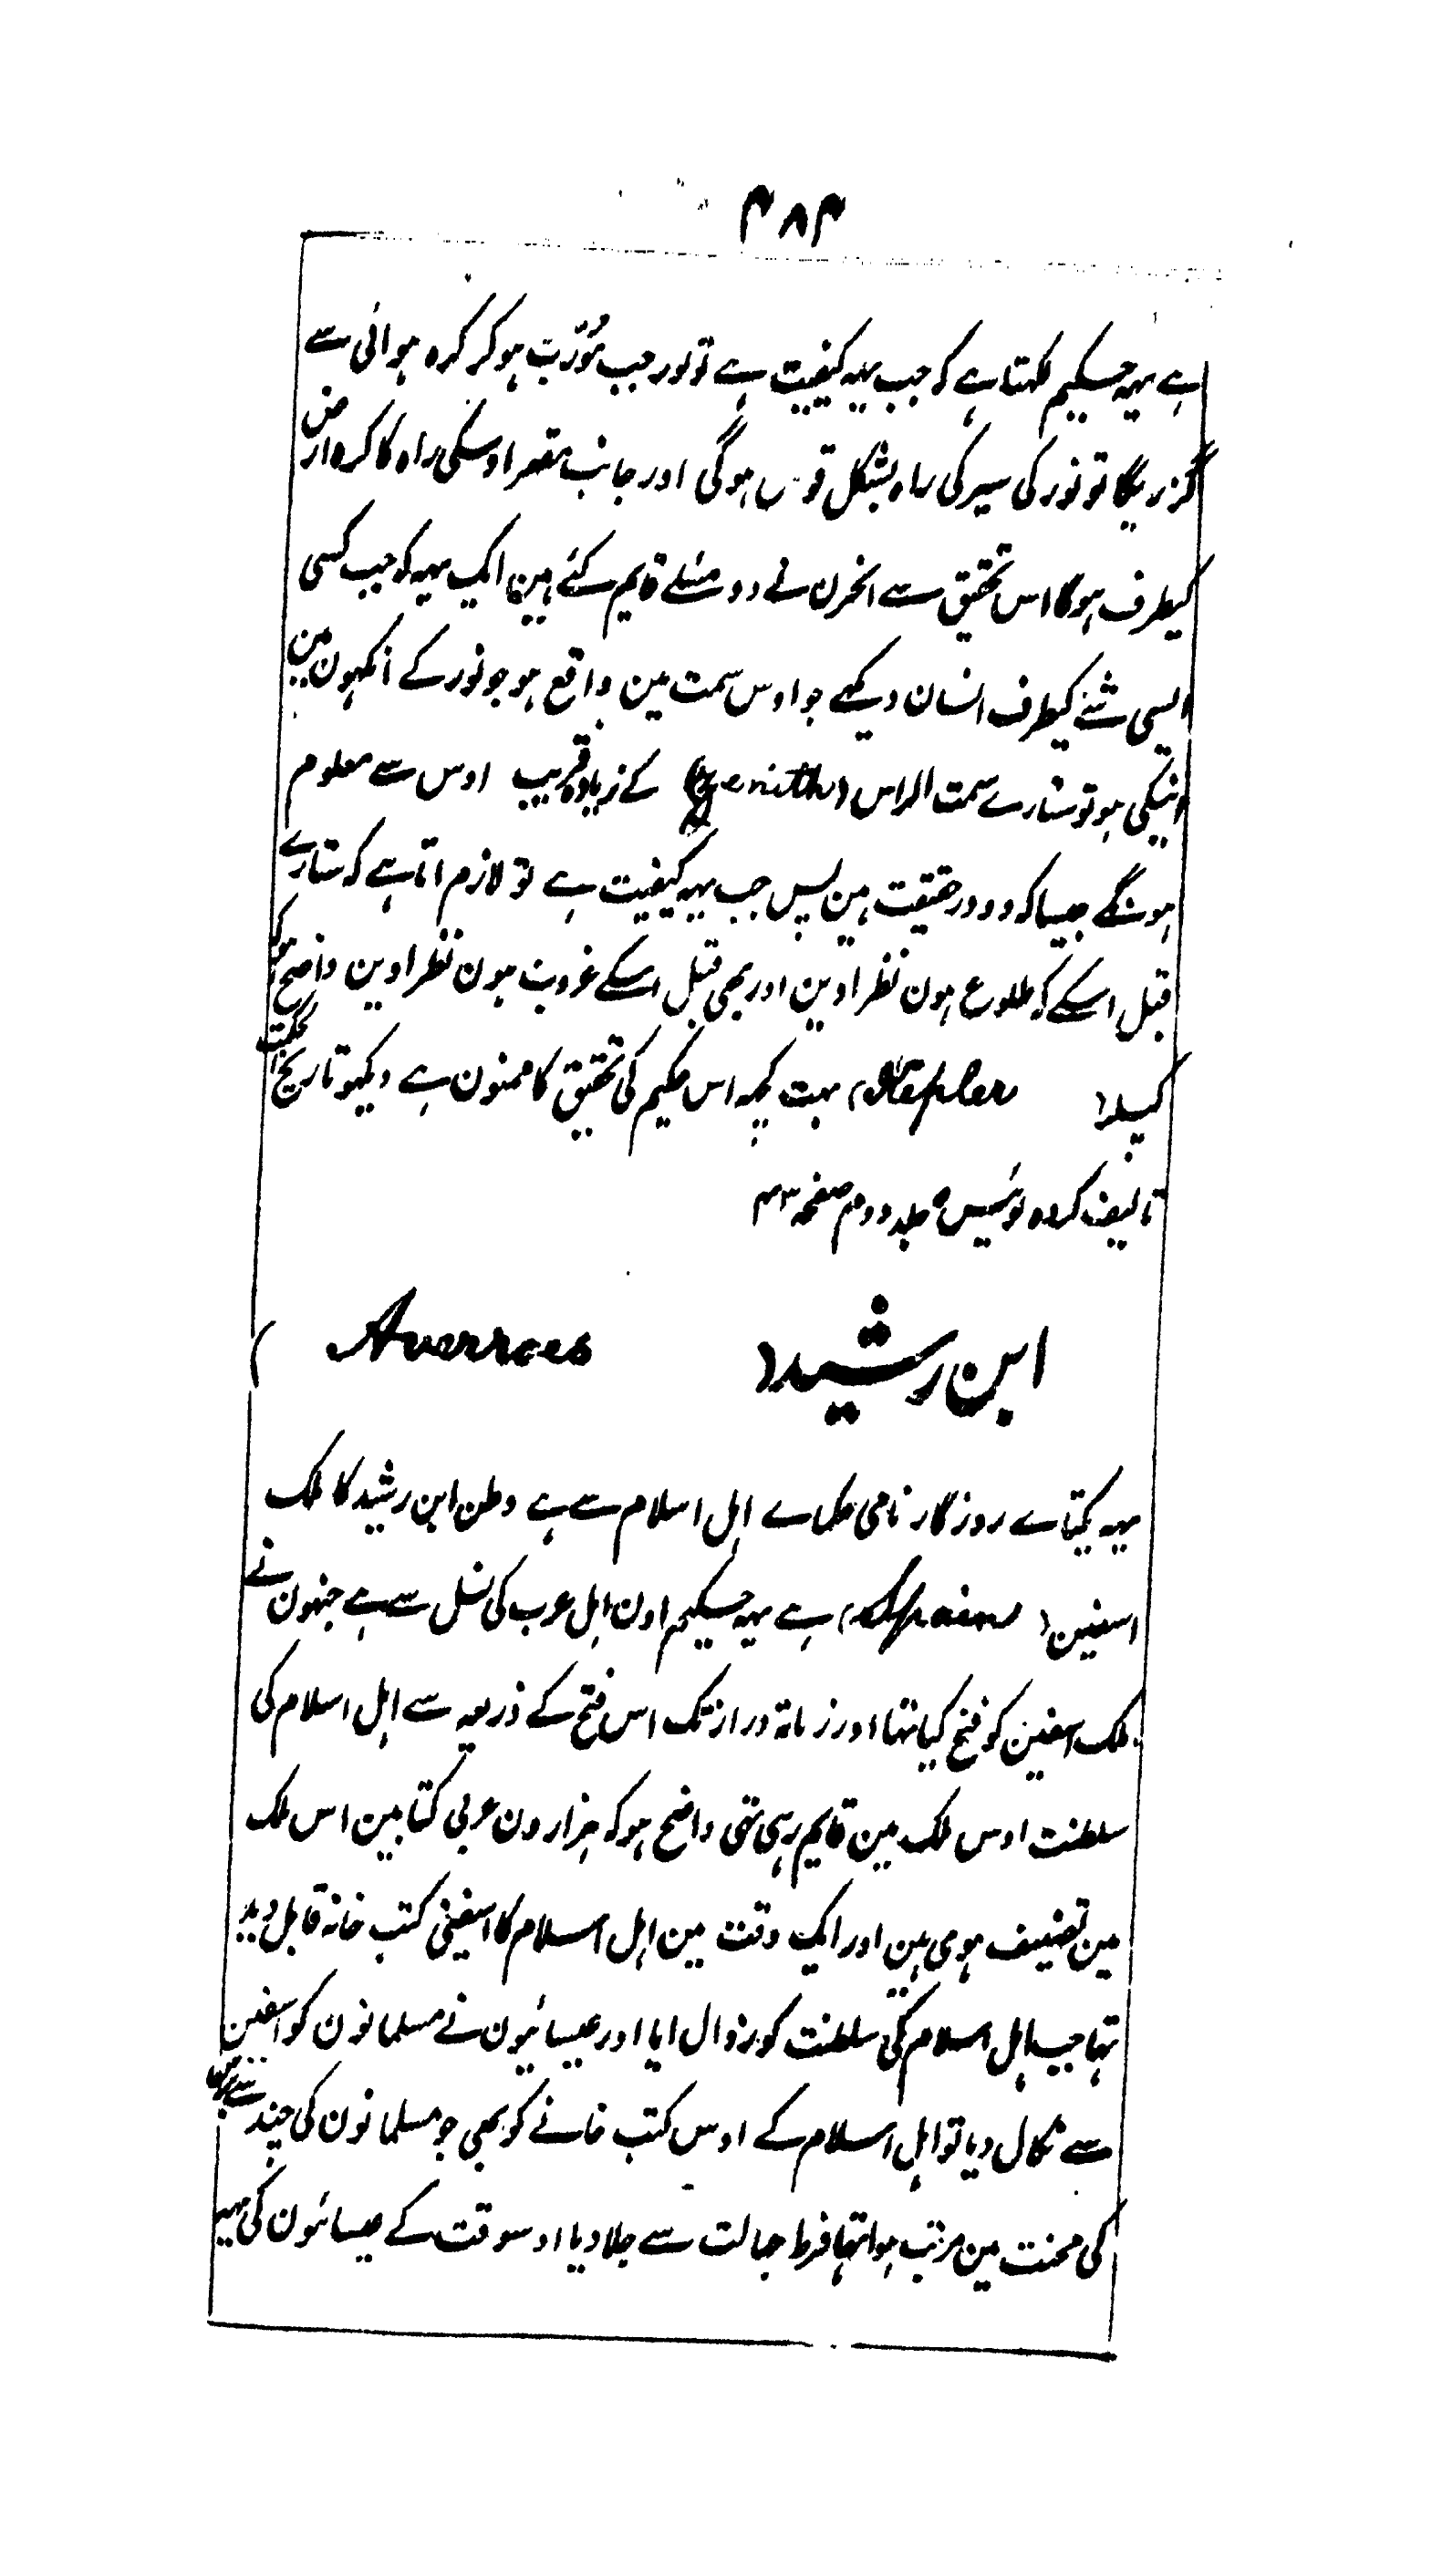 ۴۸۴
ہے یہہ حسکیم لکہتا ہے کہ جب یہہ کیفیت ہے تو نور جب مورّب ہو کر کرہ ہوائی سے
گزریگا تو نور کی سیر کی راہ بشکل قوس ہوگی اور جانب مقعر اوسکی راہ کا کرہ ارض
کیطرف ہوگا اس تحقیق سے الخزن نے دو مسئلے قایم کئے ہین ایک یہہ کہ جب کسی
ایسی شئے کیطرف انسان دیکھے جو اوس سمت مین واقع ہو جو نور کے انکہون مین
انیکی ہو تو ستارے سمت الراس (Zenith) کے زیادہ قریب اوس سے معلوم
ہونگے جیسا کہ وہ درحقیقت ہین پس جب یہہ کیفیت ہے تو لازم اتا ہے کہ ستارے
قبل اسکے کہ طلوع ہون نظر اوین اور بھی قبل اسکے غروب ہون نظر اوین واضح ہو کہ
کیپلر (Kepler) بہت کچہہ اس حکیم کی تحقیق کا ممنون ہے دیکہو تاریخ حکمت
تالیف کردہ لوئیس جلد دوم صفحہ ۳۴
ابن رشید (Averroes)
یہہ یکتاے روزگار نامی حکماے اہل اسلام سے ہے وطن ابن رشید کا ملک
اسفین (Spain) ہے یہہ حسکیم اون اہل عرب کی نسل سے ہے جنہون نے
ملک اسفین کو فتح کیا تہا اور زمانہ دراز تک اس فتح کے ذریعہ سے اہل اسلام کی
سلطنت اوس ملک مین قایم رہی تہی واضح ہو کہ ہزارون عربی کتابین اس ملک
مین تصنیف ہوی ہین اور ایک وقت مین اہل اسلام کا اسفینی کتب خانہ قابل دید
تہا جب اہل اسلام کی سلطنت کو زوال ایا اور عیسائیون نے مسلمانون کو اسفین
سے نکال دیا تو اہل اسلام کے اوس کتب خانے کو بھی جو مسلمانون کی چند
کی محنت مین مرتب ہوا تہا فرط جہالت سے جلا دیا اوسوقت کے عیسائون کی یہہ